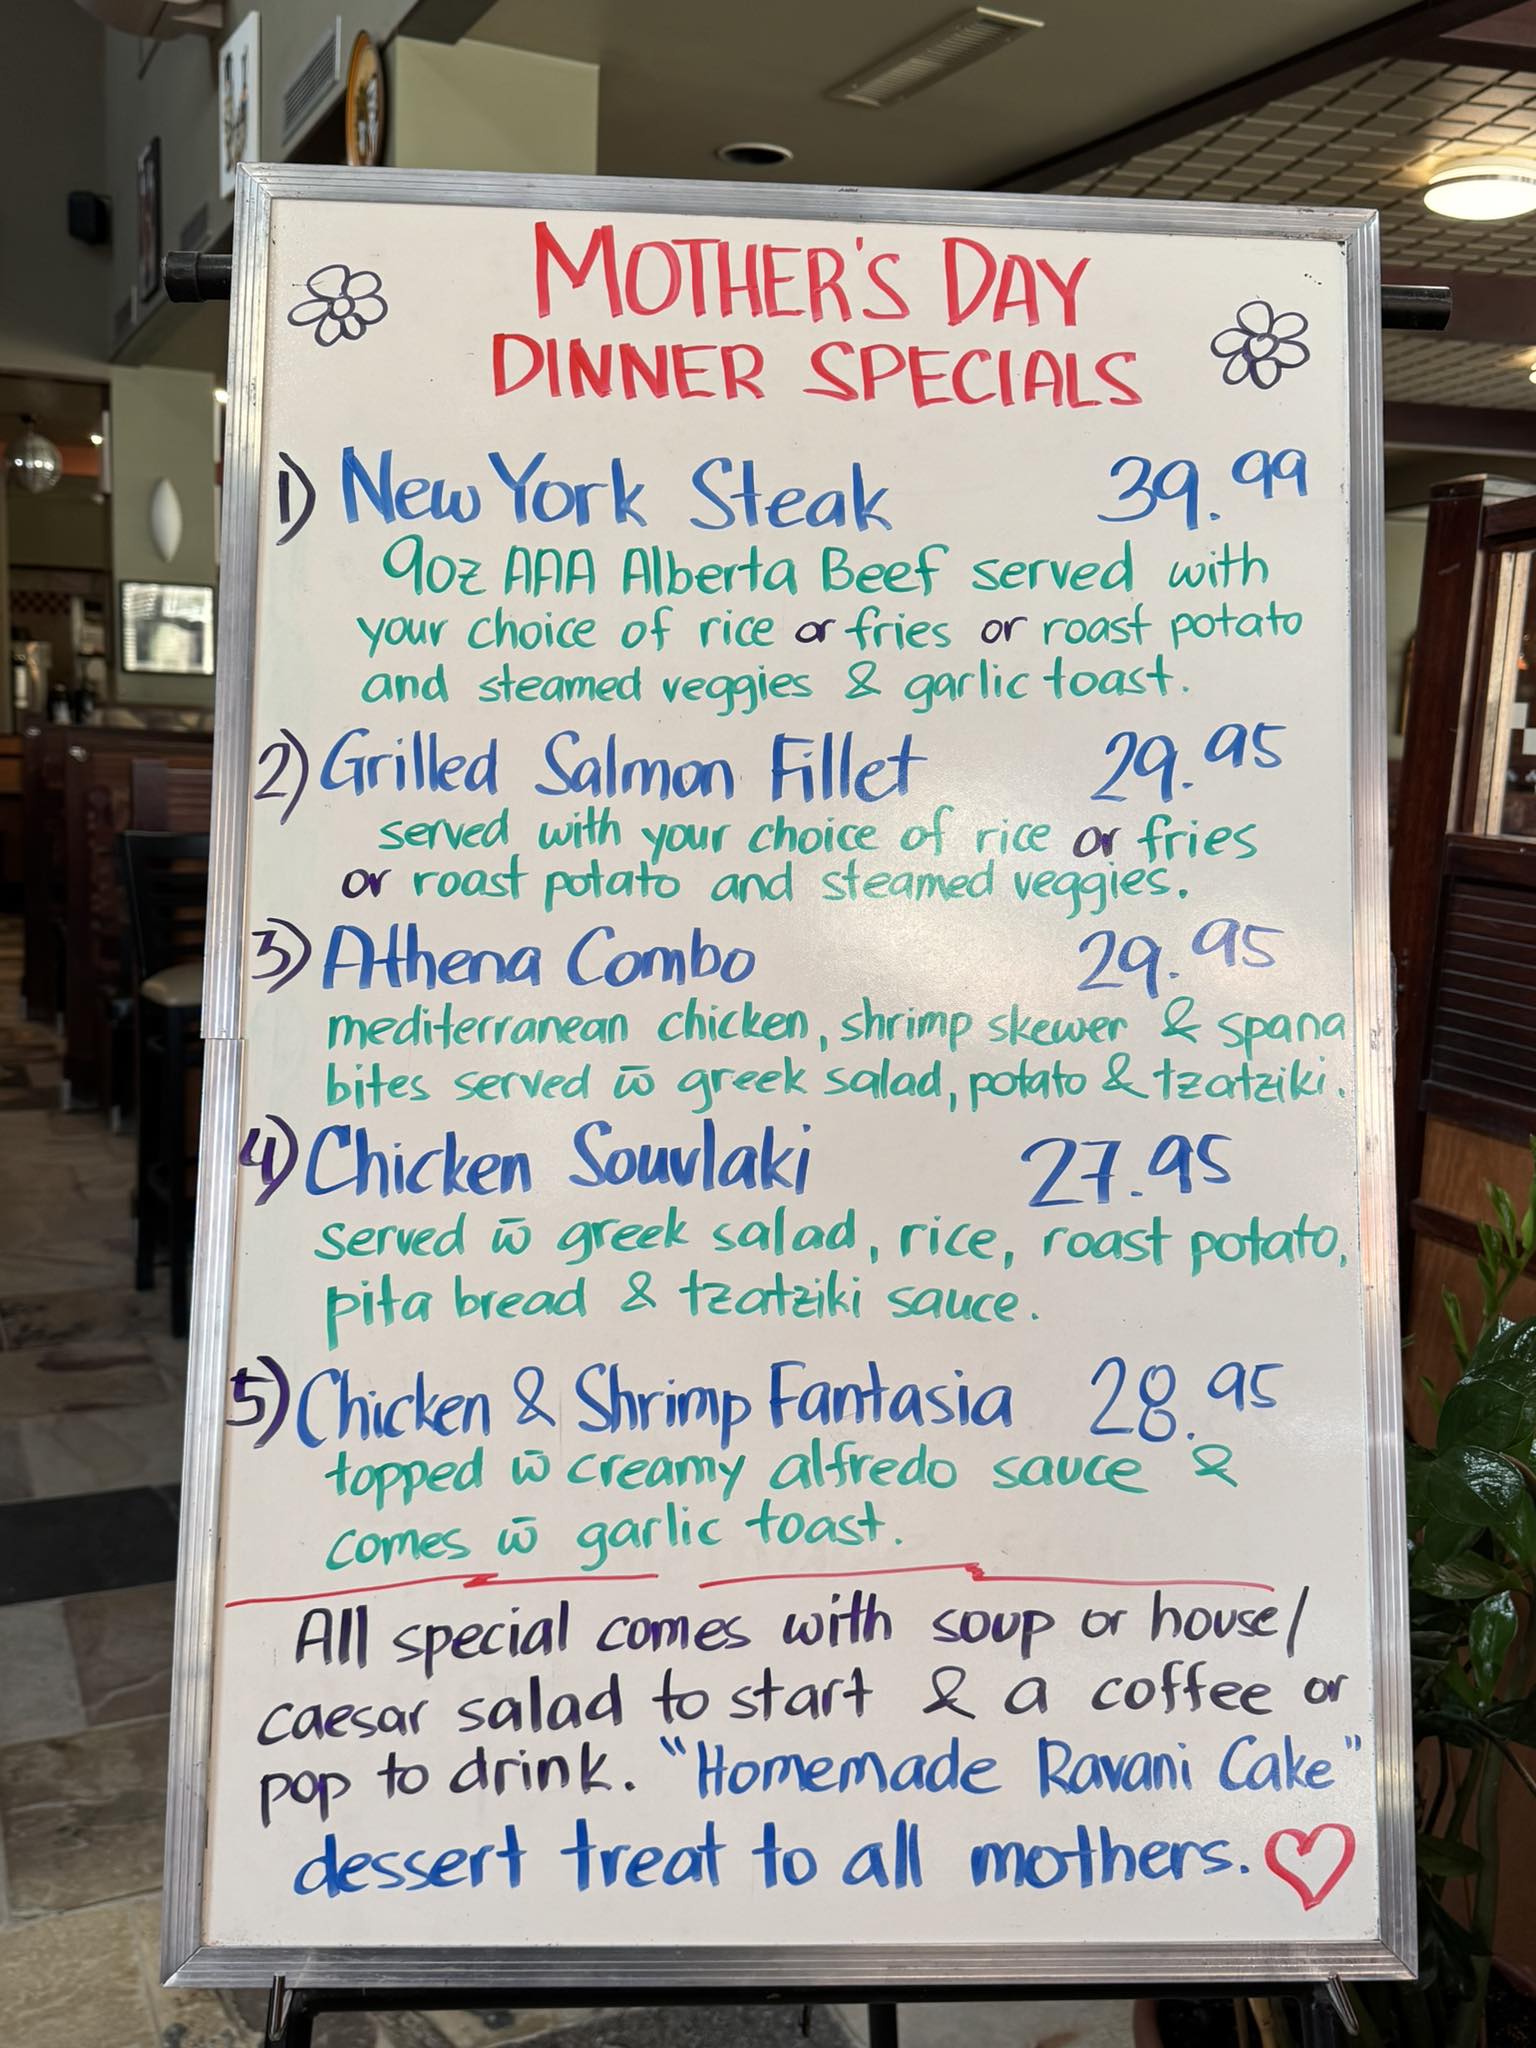 MOTHER'S DAY
DINNER SPECIALS
1) New York Steak 39.99
9oz AAA Alberta Beef served with
your choice of rice or fries or roast potato
and steamed veggies & garlic toast.
2) Grilled Salmon Fillet 29.95
served with your choice of rice or fries
or roast potato and steamed veggies.
3) Athena Combo 29.95
mediterranean chicken, shrimp skewer & spana
bites served w̄ greek salad, potato & tzatziki.
4) Chicken Souvlaki 27.95
served w̄ greek salad, rice, roast potato,
pita bread & tzatziki sauce.
5) Chicken & Shrimp Fantasia 28.95
topped w̄ creamy alfredo sauce &
comes w̄ garlic toast.
All special comes with soup or house/
caesar salad to start & a coffee or
pop to drink. "Homemade Ravani Cake"
dessert treat to all mothers.